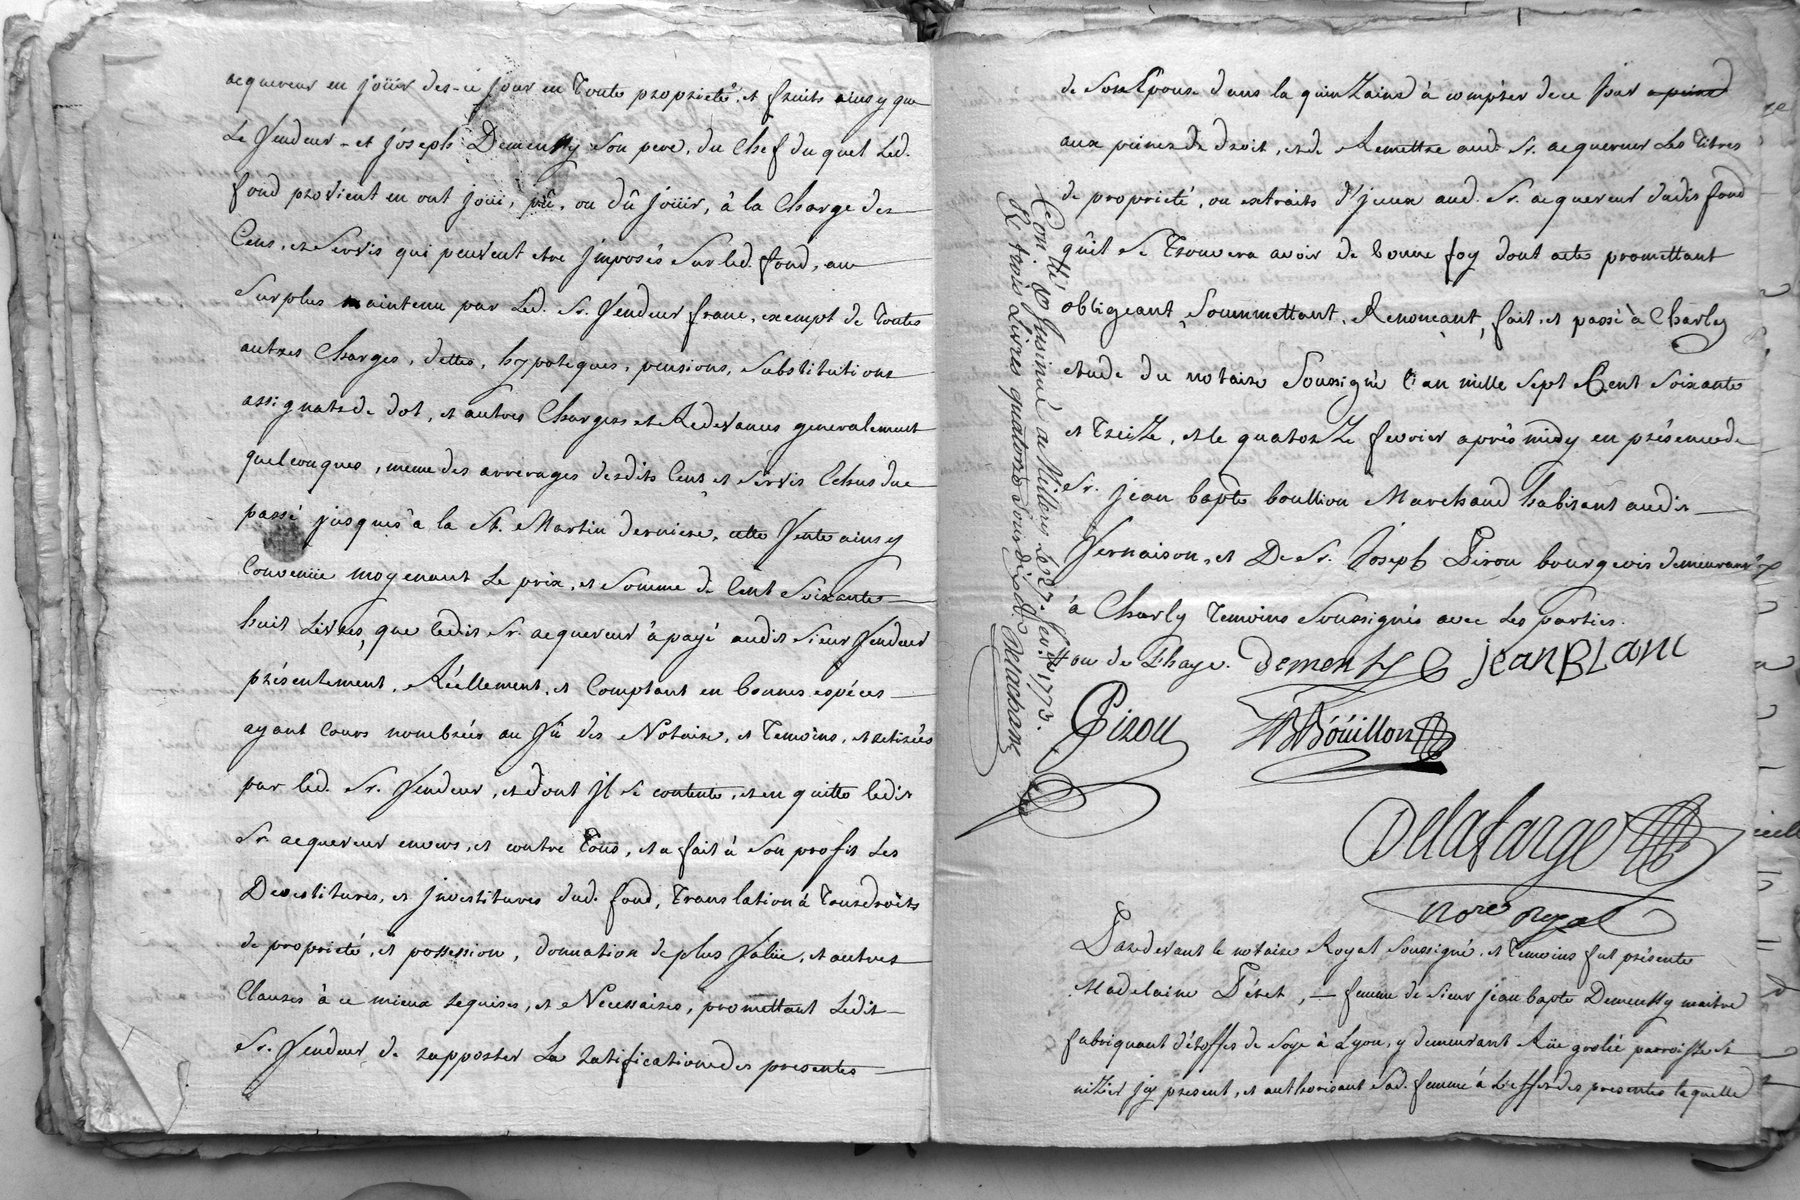 acquereur en joüir des-ce jour en toute proprieté, et fruits ainsy que
Le Vendeur et joseph Dementhy son pere, du Chef du quel Led.
fond provient en ont joüi, pû, ou dû joüir, à la Charge des
Cens, et servis qui peuvent etre jmposés sur led. fond, au
surplus maintenu par Led. Sr. Vendeur franc, exempt de toutes
autres Charges, dettes, hypoteques, pensions, substitutions
assignats de dot, et autres Charges et Redevances generalement
quelconques, meme des arrerages desdits Cens et servis Echus du
passé jusques à la St. Martin derniere, cette Vente ainsy
Convenüe moyenant Le prix, et somme de Cent soixante
huit Livres, que ledit Sr. acquereur à payé audit sieur Vendeur
présentement, Réellement, et Comptant en bonnes espéces
ayant Cours nombrées au Vû des Notaire, et temoins, et retirées
par led. Sr. Vendeur, et dont jl se contente, et en quitte ledit
Sr. acquereur envers, et contre tous, et a fait à son profit Les
Devestitures, et jnvestitures dud. fond, translation à tous droits
de proprieté, et possession, donnation de plus Valüe, et autres
Clauses à ce mieux requises, et Necessaires, promettant Ledit
Sr. Vendeur de rapporter La ratification des presentes
de son Epouse dans la quinzaine à compter de ce jour
aux peines de droit, et de Remettre aud. Sr. acquereur Les titres
de proprieté, ou extraits d'jceux aud. Sr. acquereur dudit fond
qu'il se trouvera avoir de bonne foy dont acte promettant
obligeant, soummettant, Renonçant, fait, et passé à Charly
etude du notaire soussigné L'an mille sept Cent soixante
et treize, et le quatorze fevrier après midy en présence de
Sr. jean bapte boullion Marchand habitant audit
Vernaison, et De Sr. Joseph Pirou bourgeois demeurant
à Charly temoins soussignés avec Les parties.
Con.tté & Insinué a Millery Le 27. fev. 1773.
Rt trois Livres quatorze sous dix d. Delachans
Dementhy jean BLanc
Pirou Bóüillon
Delafarge
nore royal
Pardevant le notaire Royal soussigné, et temoins fut présente
Madelaine Péret, — femme de sieur jean bapte Dementhy maitre
fabriquant d'étoffes de soye à Lyon, y demeurant Rüe grolée parroisse st
nizier jcy present, et authorisant sad. femme à L'effet des presentes laquelle